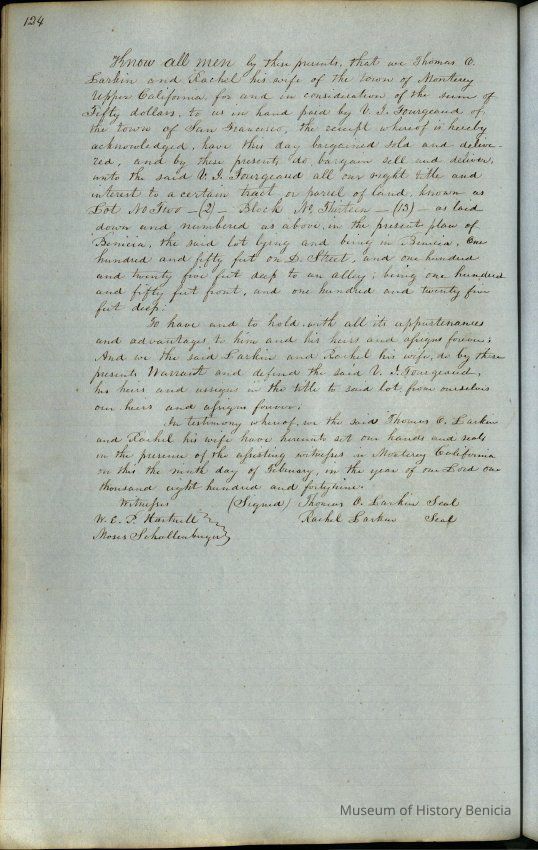 124
Know all men by these presents, that we Thomas O.
Larkin and Rachel his wife of the town of Monterey
Upper California, for and in consideration of the sum of
Fifty dollars, to us in hand paid by V. J. Fourgeaud of
the town of San Francisco, the receipt whereof is hereby
acknowledged, have this day bargained sold and delive-
red, and by these presents do, bargain sell and deliver,
unto the said V. J. Fourgeaud all our right title and
interest to a certain tract or parcel of land, known as
Lot No Two - (2) - Block No Thirteen - (13) - as laid
down and numbered as above, in the present plan of
Benicia, the said lot lying and being in Benicia, One
hundred and fifty feet on D. Street, and one hundred
and twenty five feet deep to an alley, being one hundred
and fifty feet front, and one hundred and twenty five
feet deep.
To have and to hold with all its appurtenances
and advantages, to him and his heirs and assigns forever;
And we the said Larkin and Rachel his wife, do by these
presents Warrant and defend the said V. J. Fourgeaud,
his heirs and assigns in the title to said lot, from ourselves
our heirs and assigns forever.
In testimony whereof, we the said Thomas O. Larkin
and Rachel his wife have hereunto set our hands and seals
in the presence of the assisting witnesses in Monterey California
on this the ninth day of February, in the year of our Lord one
thousand eight hundred and forty nine.
Witnesses (Signed) Thomas O. Larkin Seal
W. E. P. Hartnell Rachel Larkin Seal
Moses Schallenberger
Museum of History Benicia